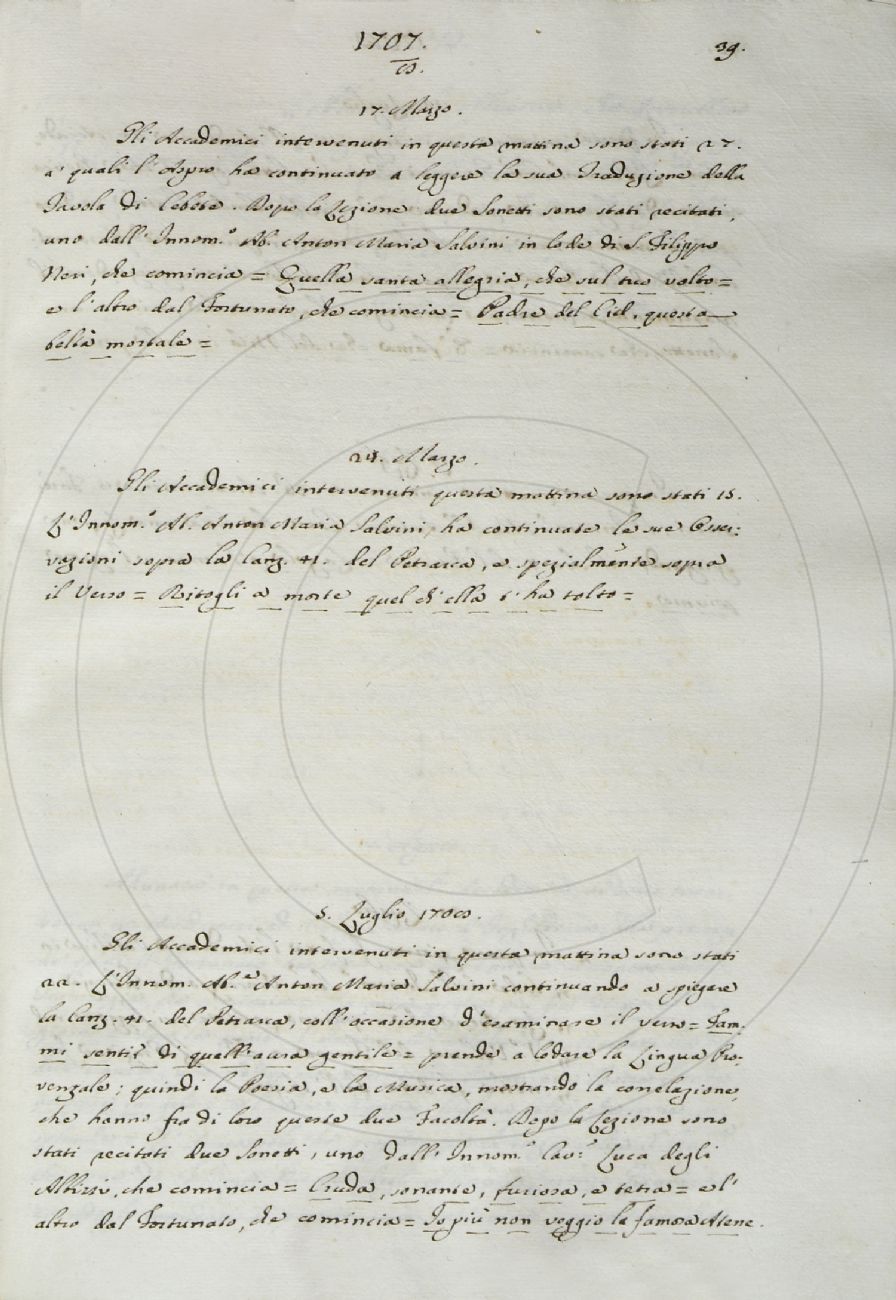 1707.
39.
8.
17. Marzo.
Gli Accademici intervenuti in questa mattina sono stati 27.
a' quali l'Aspro ha continuato a leggere la sua Traduzione della
Tavola di Cebete. Dopo la Lezione due Sonetti sono stati recitati,
uno dall'Innom.o Ab. Anton Maria Salvini in lode di S. Filippo
Neri, che comincia = Quella santa allegria, che sul tuo volto =
e l'altro dal Fortunato, che comincia = Padre del Ciel, questa
beltà mortale =
24. Marzo.
Gli Accademici intervenuti questa mattina sono stati 18.
L'Innom.o Ab. Anton Maria Salvini, ha continuate le sue Osser:
vazioni sopra la Canz. 41. del Petrarca, e spezialmente sopra
il Verso = Ritogli a morte quel ch'ella c'ha tolto =
5. Luglio 1708.
Gli Accademici intervenuti in questa mattina sono stati
22. L'Innom. Ab.e Anton Maria Salvini continuando a spiegare
la Canz. 41. del Petrarca, coll'occasione d'esaminare il verso = Fam:
mi sentir di quell'aura gentile = prende a lodare la Lingua Pro:
venzale; quindi la Poesia, e la Musica, mostrando la correlazione,
che hanno fra di loro queste due Facoltà. Dopo la Lezione sono
stati recitati due Sonetti, uno dall'Innom.o Cav.e Luca degli
Albizi, che comincia = Cruda, sonante, furiosa, e tetra = e l'
altro dal Fortunato, che comincia = Io più non veggio la famosa Atene.